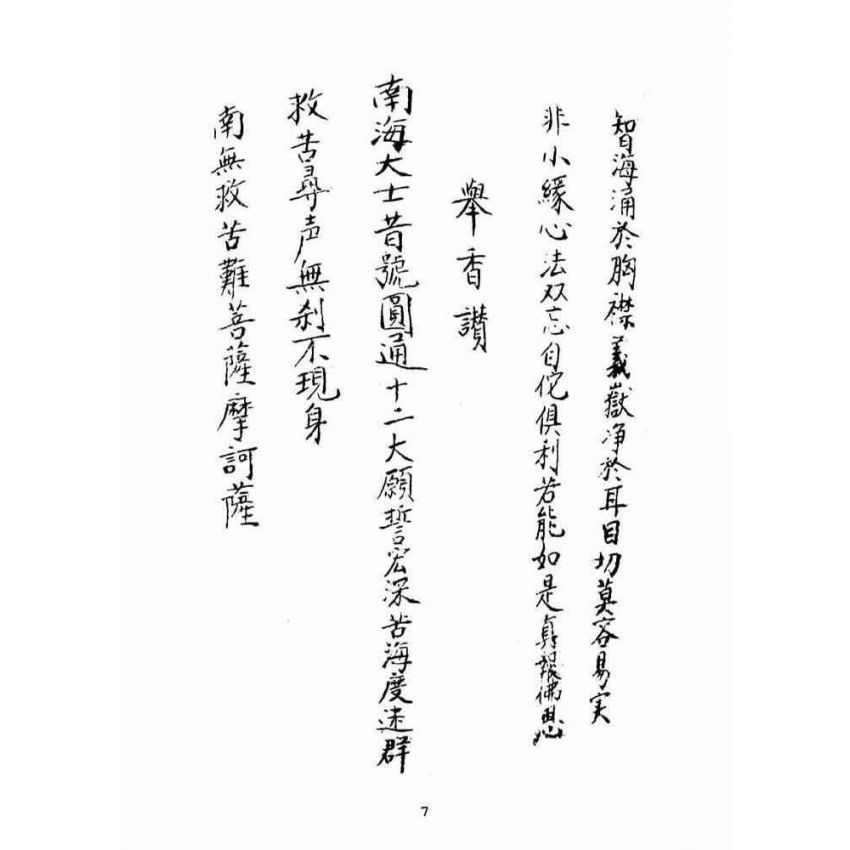 智海涌於胸襟義嶽净於耳目切莫容易实
非小緣心法双忘自佗俱利若能如是真報佛恩
舉香讃
南海大士昔號圓通十二大願誓宏深苦海度迷群
救苦尋声無刹不現身
南無救苦難菩薩摩訶薩
7